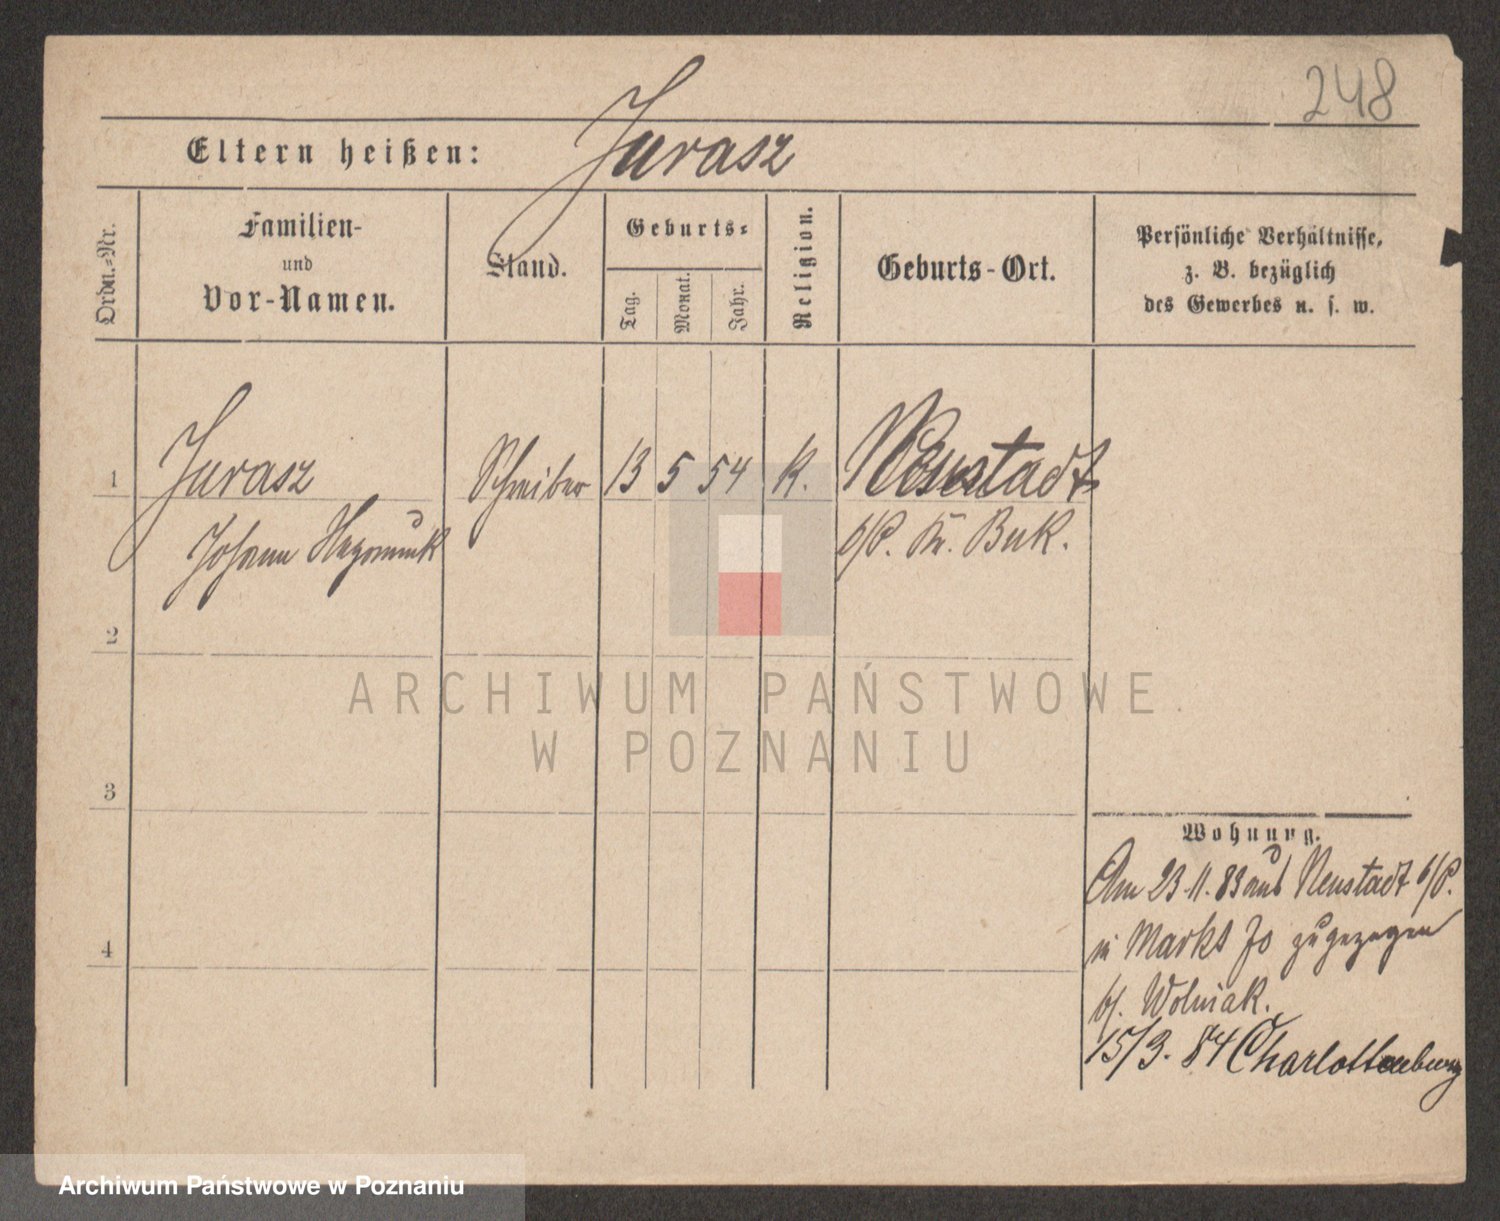 248
Eltern heißen: Jurasz
Ordn.-Nr.
Familien-
und
Vor-Namen.
Stand.
Geburts-
Tag.
Monat.
Jahr.
Religion.
Geburts-Ort.
Persönliche Verhältnisse,
z. B. bezüglich
des Gewerbes u. s. w.
1 Jurasz Schreiber 13 5 54 K. Neustadt
Johann b/P. Kr. Buk.
2
3
4
ARCHIWUM PAŃSTWOWE
W POZNANIU
Wohnung.
Am 23.11.83 aus Neustadt b/P.
in Markt 70 zugezogen
b/. Wolniak.
15/3. 84 Charlottenburg
Archiwum Państwowe w Poznaniu